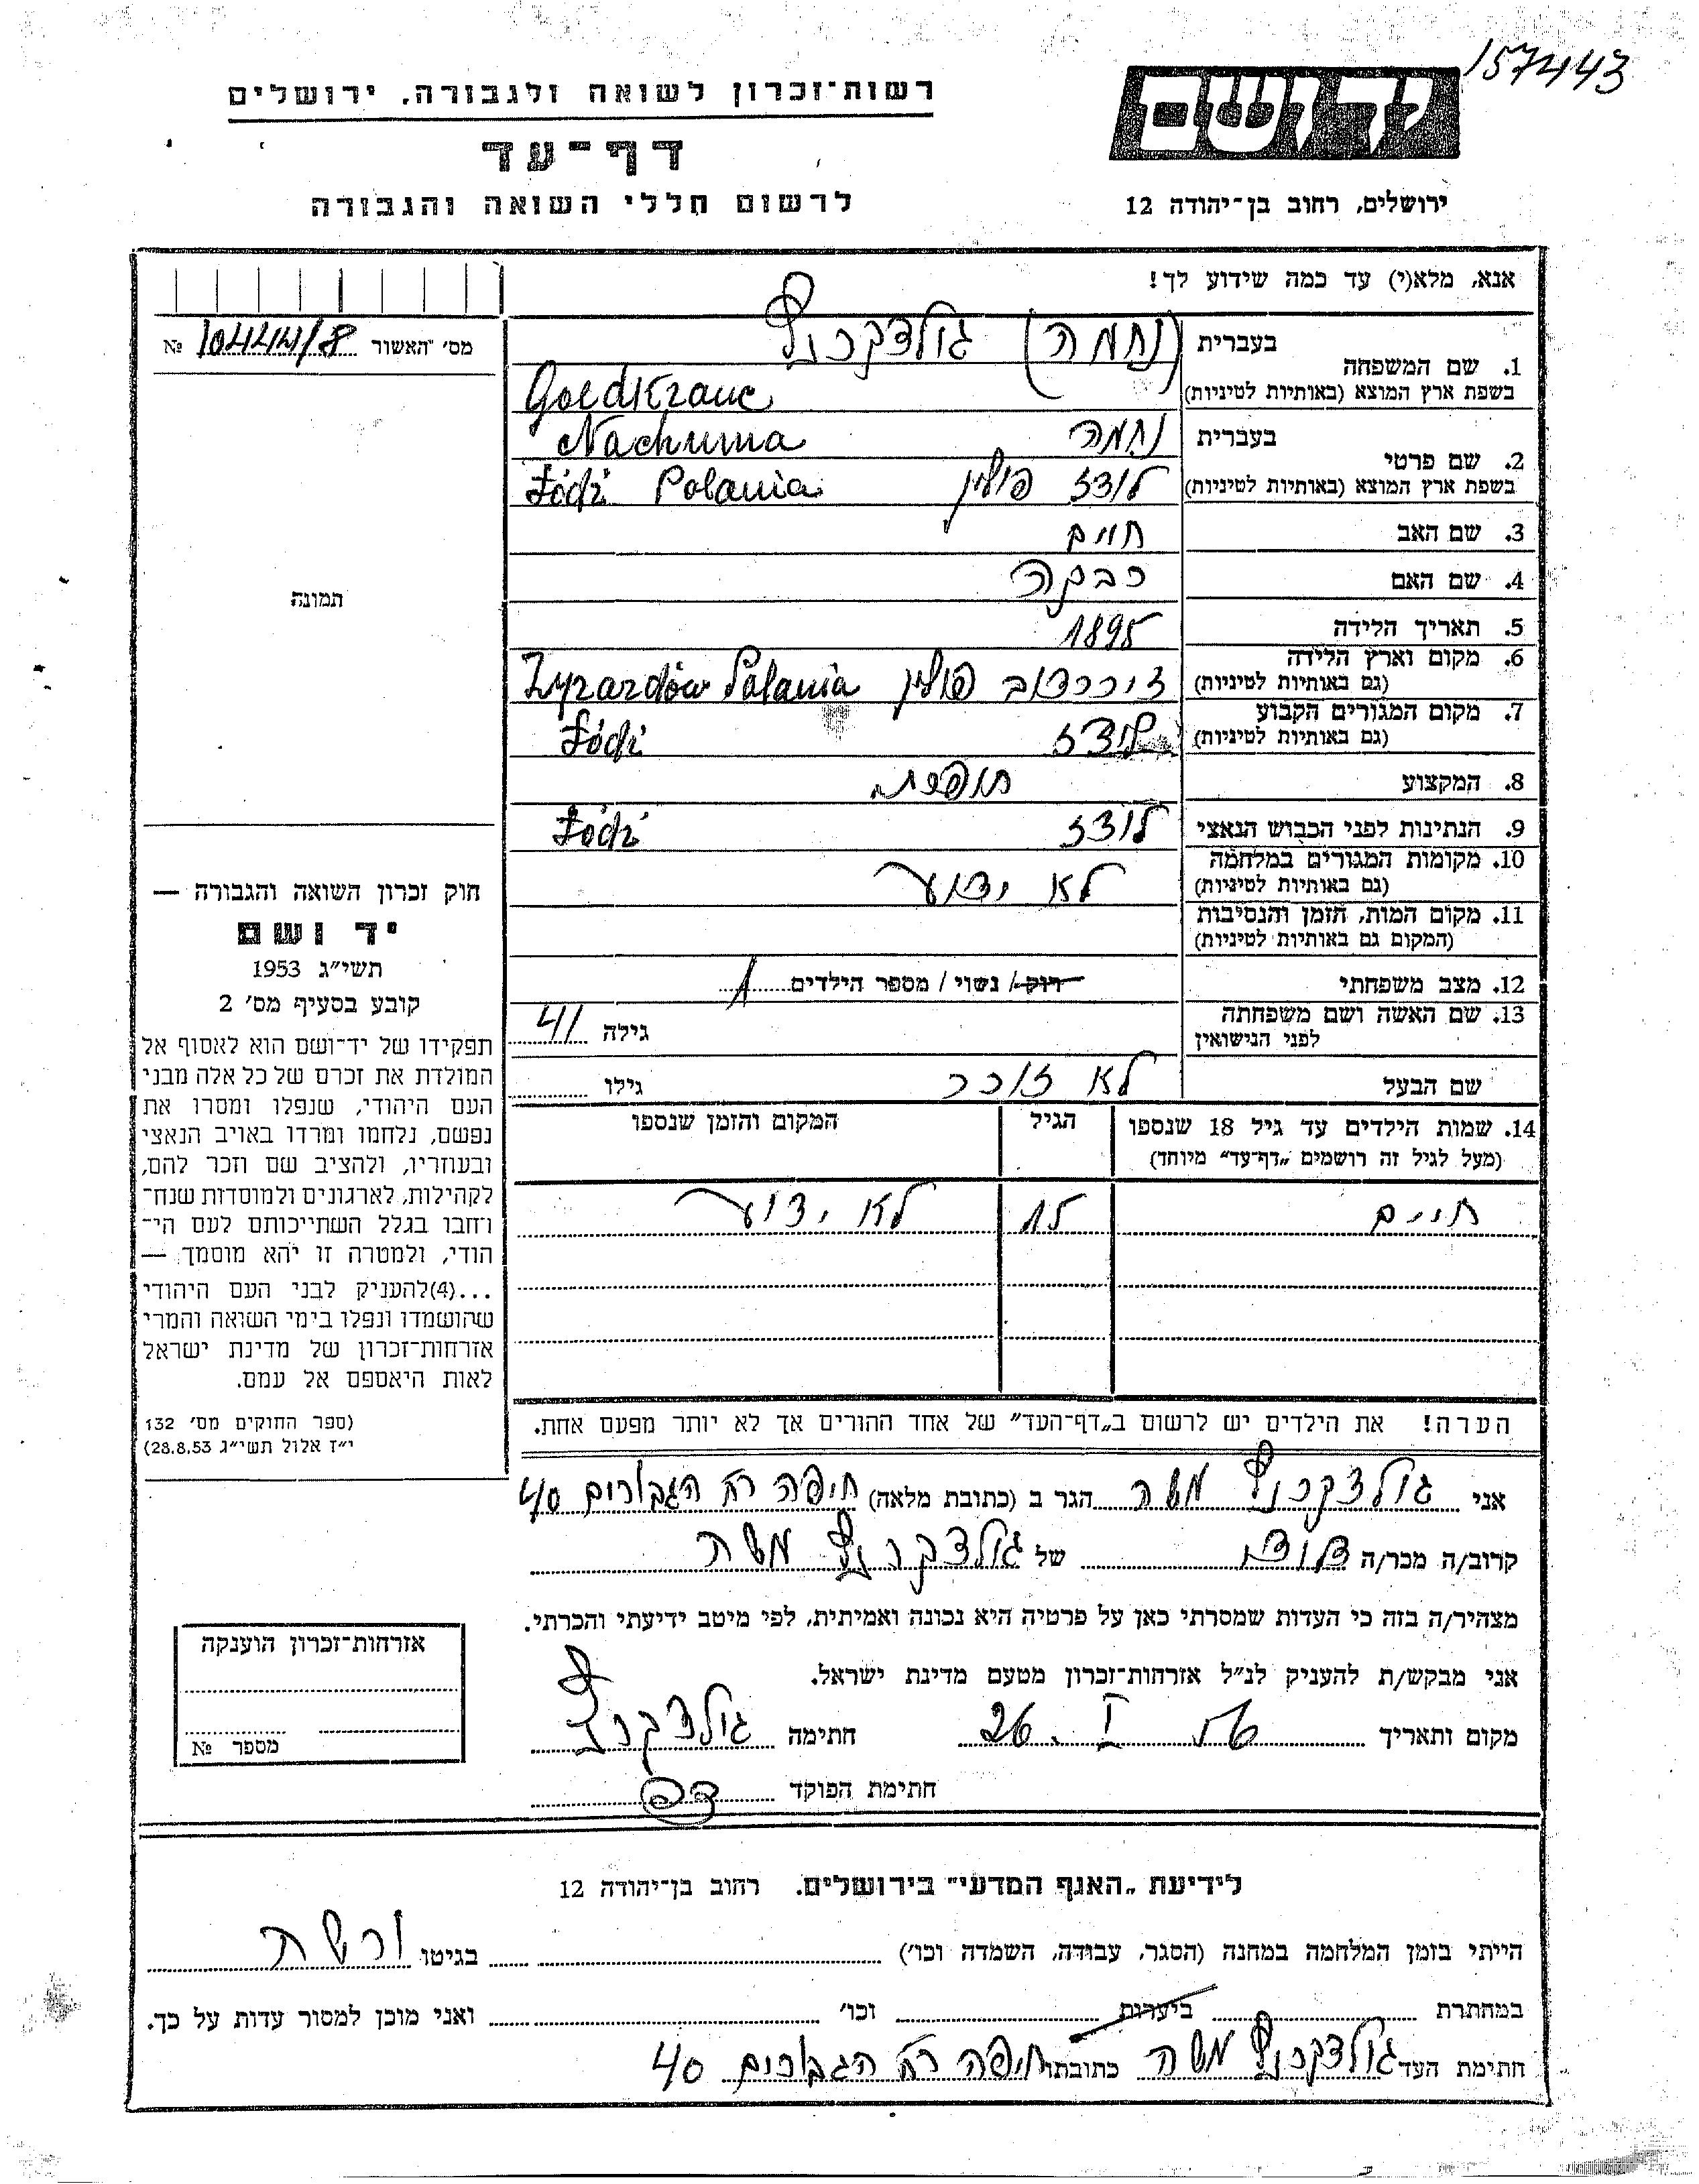 157443
יד ושם
רשות־זכרון לשואה ולגבורה, ירושלים
דף־עד
ירושלים, רחוב בן־יהודה 12
לרשום חללי השואה והגבורה
אנא, מלא(י) עד כמה שידוע לך!
מס' האשור № 10444/8
תמונה
1. שם המשפחה בעברית (נחמה) גולדקרנץ
בשפת ארץ המוצא (באותיות לטיניות) Goldkranc
2. שם פרטי בעברית נחמה Nachuma
בשפת ארץ המוצא (באותיות לטיניות) לודז פולין Łódź Polania
3. שם האב חיים
4. שם האם רבקה
5. תאריך הלידה 1895
6. מקום וארץ הלידה
(גם באותיות לטיניות) זיררדוב פולין Żyrardów Polania
7. מקום המגורים הקבוע
(גם באותיות לטיניות) לודז Łódź
8. המקצוע תופרת
9. הנתינות לפני הכבוש הנאצי לודז Łódź
10. מקומות המגורים במלחמה
(גם באותיות לטיניות) לא ידוע
11. מקום המות, הזמן והנסיבות
(המקום גם באותיות לטיניות)
12. מצב משפחתי רוק / נשוי / מספר הילדים 1
13. שם האשה ושם משפחתה
לפני הנישואין גילה 41
שם הבעל לא זוכר גילו
14. שמות הילדים עד גיל 18 שנספו הגיל המקום והזמן שנספו
(מעל לגיל זה רושמים „דף־עד" מיוחד)
חיים 15 לא ידוע
הערה! את הילדים יש לרשום ב„דף־העד" של אחד ההורים אך לא יותר מפעם אחת.
חוק זכרון השואה והגבורה —
יד ושם
תשי"ג 1953
קובע בסעיף מס' 2
תפקידו של יד־ושם הוא לאסוף אל
המולדת את זכרם של כל אלה מבני
העם היהודי, שנפלו ומסרו את
נפשם, נלחמו ומרדו באויב הנאצי
ובעוזריו, ולהציב שם וזכר להם,
לקהילות, לארגונים ולמוסדות שנח־
רבו בגלל השתייכותם לעם הי־
הודי, ולמטרה זו יהא מוסמך —
...(4)להעניק לבני העם היהודי
שהושמדו ונפלו בימי השואה והמרי
אזרחות־זכרון של מדינת ישראל
לאות היאספם אל עמם.
(ספר החוקים מס' 132
י"ז אלול תשי"ג 28.8.53)
אני גולדקרנץ משה הגר ב (כתובת מלאה) חיפה רח הגבורים 40
קרוב/ה מכר/ה של גולדקרנץ משה
מצהיר/ה בזה כי העדות שמסרתי כאן על פרטיה היא נכונה ואמיתית, לפי מיטב ידיעתי והכרתי.
אני מבקש/ת להעניק לנ"ל אזרחות־זכרון מטעם מדינת ישראל.
מקום ותאריך 26. I חתימה גולדקרנץ
חתימת הפוקד
אזרחות־זכרון הוענקה
מספר №
לידיעת „האגף המדעי" בירושלים. רחוב בן־יהודה 12
הייתי בזמן המלחמה במחנה (הסגר, עבודה, השמדה וכו') בגיטו ורשה
במחתרת ביערות וכו' ואני מוכן למסור עדות על כך.
חתימת העד גולדקרנץ משה כתובתו חיפה רח הגבורים 40